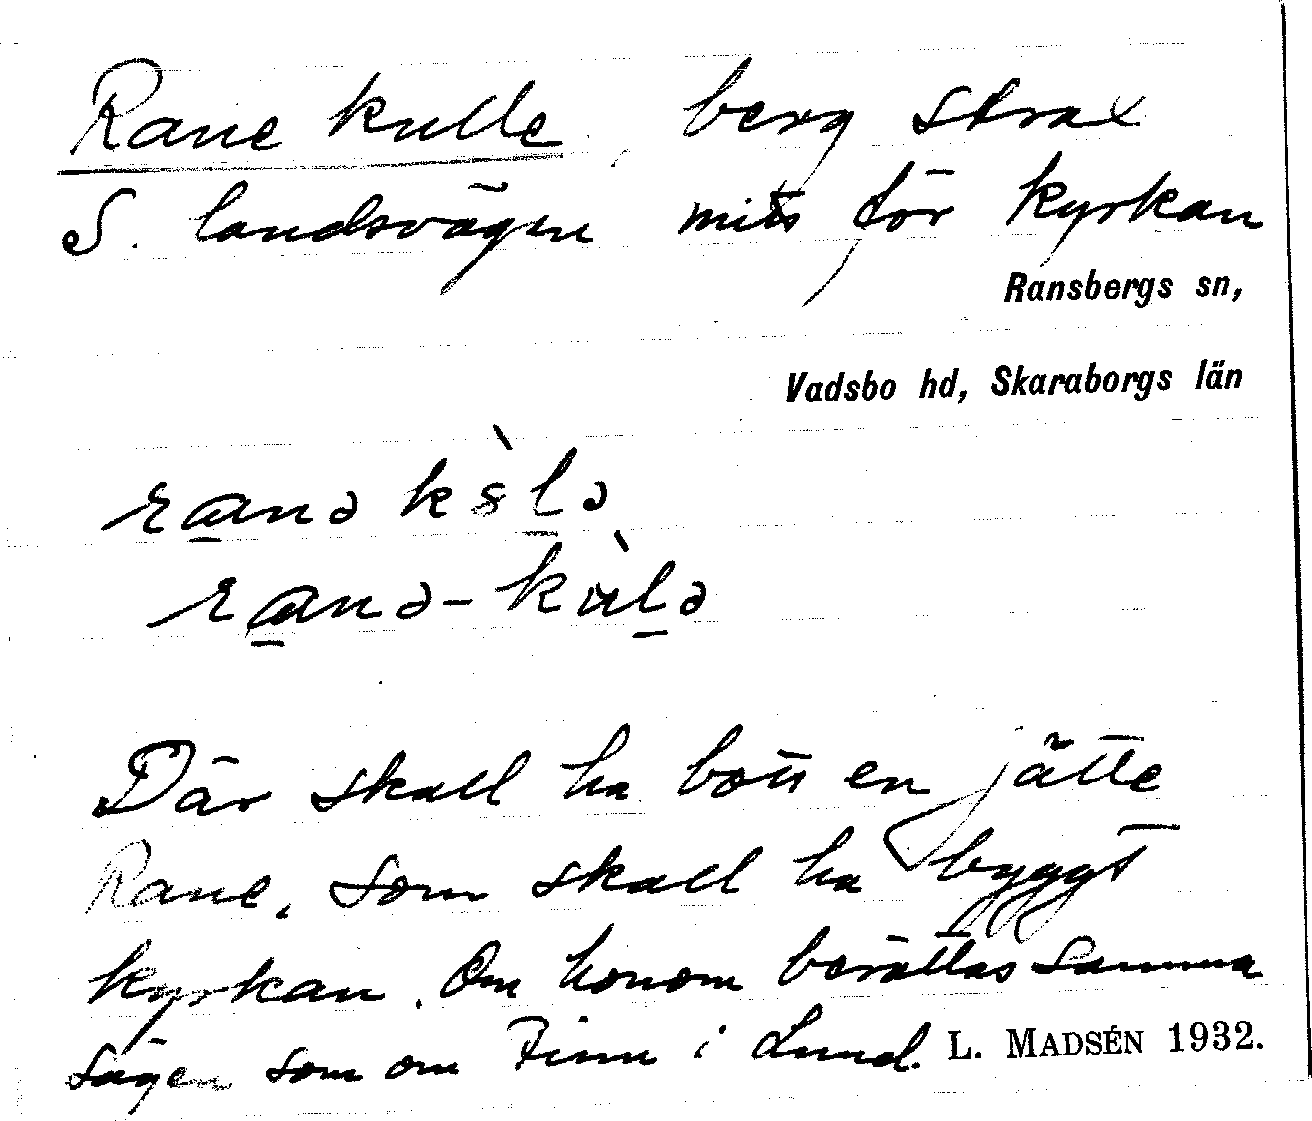 Rane kulle, berg strax
S. landsvägen mitt för kyrkan
Ransbergs sn,
Vadsbo hd, Skaraborgs län
Där skall ha bott en jätte
Rane, som skall ha byggt
kyrkan. Om honom berättas samma
sägen som om Finn i Lund.
L. MADSÉN 1932.